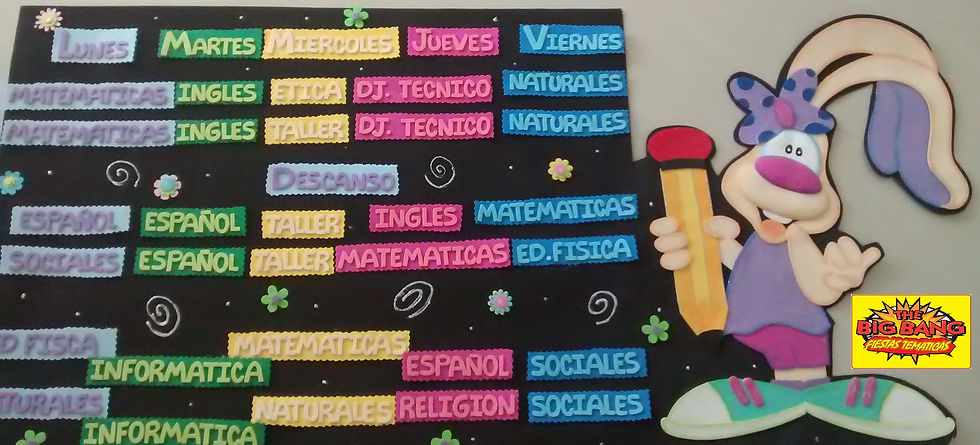 LUNES MARTES MIERCOLES JUEVES VIERNES
MATEMATICAS INGLES ETICA DJ. TECNICO NATURALES
MATEMATICAS INGLES TALLER DJ. TECNICO NATURALES
DESCANSO
ESPAÑOL ESPAÑOL TALLER INGLES MATEMATICAS
SOCIALES ESPAÑOL TALLER MATEMATICAS ED.FISICA
D FISCA MATEMATICAS
INFORMATICA ESPAÑOL SOCIALES
TURALES NATURALES RELIGION SOCIALES
INFORMATICA
THE
BIG BANG
FIESTAS TEMATICAS